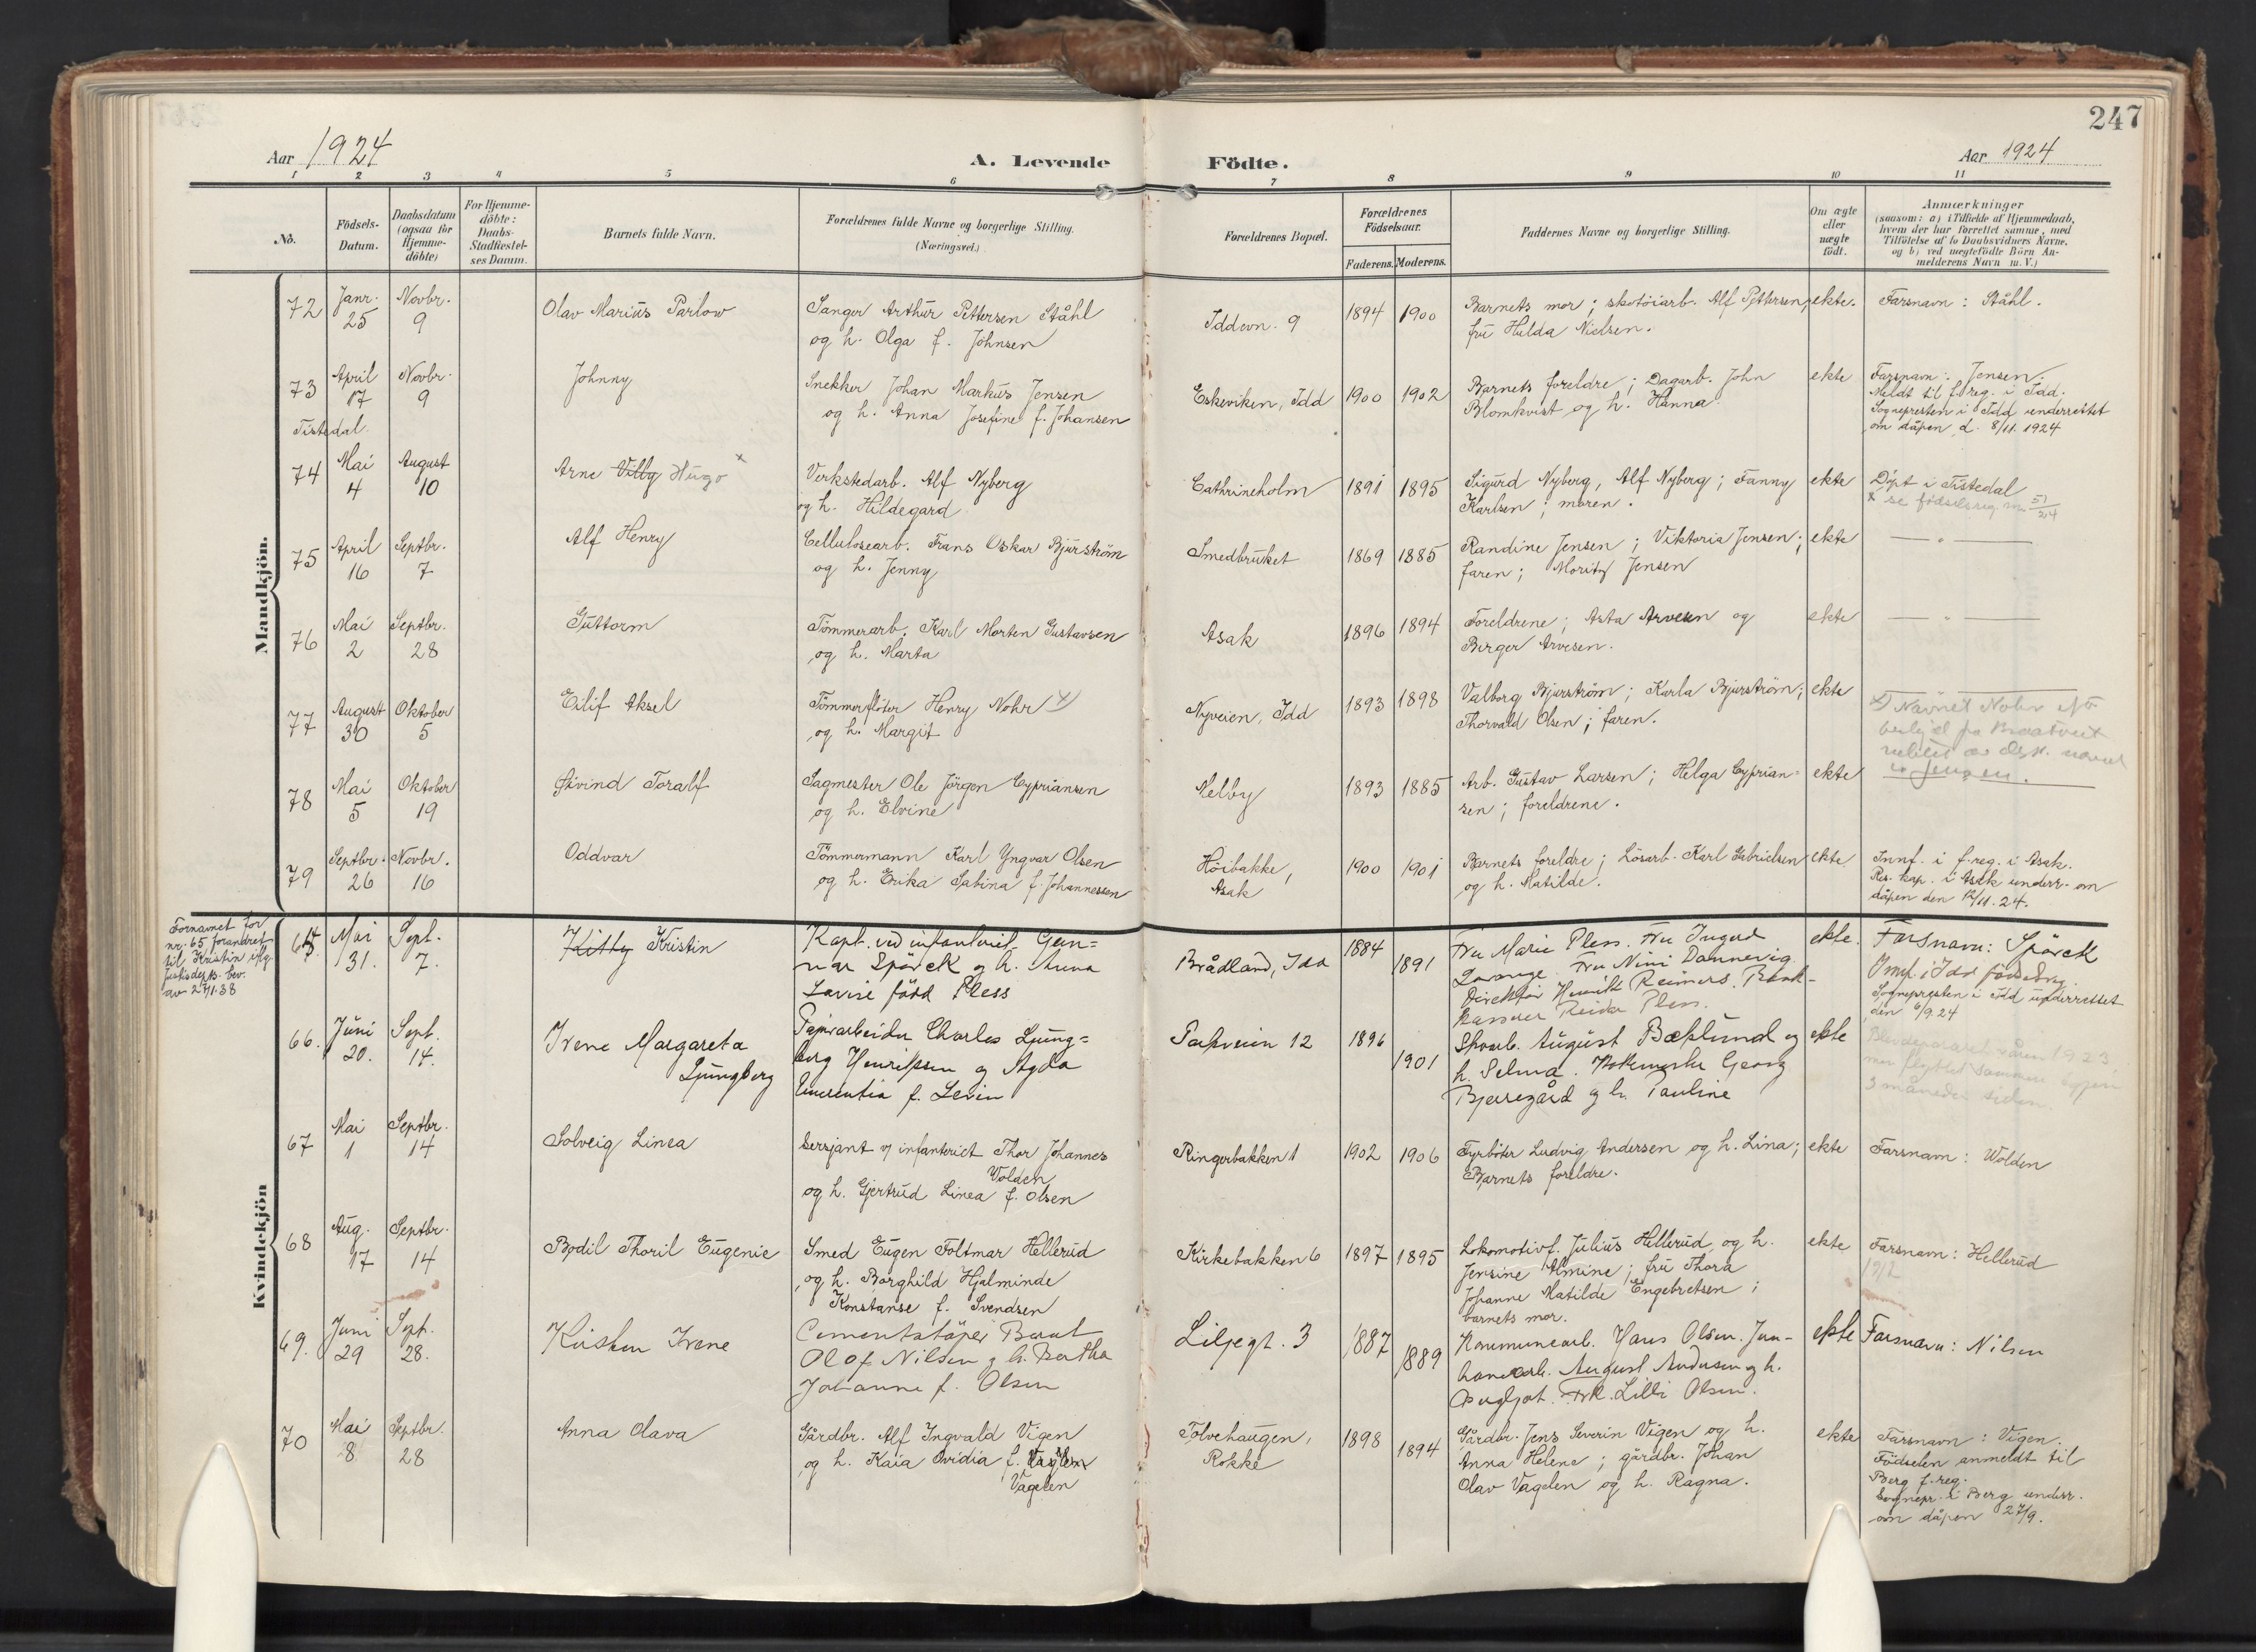 247
Aar 1924
A. Levende Födte.
Aar 1924
1 2 3 4 5 6 7 8 9 10 11
No.
Födsels-Datum.
Daabsdatum (ogsaa for Hjemme-döbte)
For Hjemme-döbte: Daabs-Stadfæstel-ses Datum.
Barnets fulde Navn.
Forældrenes fulde Navne og borgerlige Stilling.
(Næringsvei.)
Forældrenes Bopæl.
Forældrenes Födselsaar.
Faderens. Moderens.
Faddernes Navne og borgerlige Stilling.
Om ægte eller uægte födt.
Anmærkninger
(saasom: a) i Tilfælde af Hjemmedaab,
hvem der har forrettet samme, med
Tilföielse af to Daabsvidners Navne,
og b) ved uegtefödte Börn An-
melderens Navn m. V.)
Mandkjön.
72 Janr. 25 Novbr. 9 Olav Marius Parlow
Sanger Arthur Pettersen Ståhl
og h. Olga f. Johnsen
Iddevn. 9 1894 1900
Barnets mor; skotöiarb. Alf Pettersen,
fru Hulda Nielsen.
ekte.
Farsnavn: Ståhl.
73 April 17 Novbr. 9 Johnny
Snekker Johan Markus Jensen
og h. Anna Josefine f. Johansen
Eskeviken, Idd 1900 1902
Barnets foreldre; Dagarb. John
Blomkvist og h. Hanna
ekte
Farsnavn: Jensen.
Meldt til f. reg. i Idd.
Sognepresten i Idd underrettet
om dåpen d. 8/11. 1924
Tistedal.
74 Mai 4 August 10 Arne Villy Hugo x
Verkstedarb. Alf Nyberg
og h. Hildegard
Cathrineholm 1891 1895
Sigurd Nyberg, Alf Nyberg; Fanny
Karlsen; moren.
ekte
Döpt i Tistedal
x se födselsreg. nr. 51/24
75 April 16 Septbr. 7 Alf Henry
Cellulosearb. Frans Oskar Bjurström
og h. Jenny
Smedbruket 1869 1885
Randine Jensen; Viktoria Jensen;
faren; Moritz Jensen
ekte — " —
76 Mai 2 Septbr. 28 Guttorm
Tömmerarb. Karl Morten Gustavsen
og h. Marta
Asak 1896 1894
Foreldrene; Asta Arvesen og
Birger Arvesen.
ekte — " —
77 August 30 Oktober 5 Eilif Aksel
Tömmerflöter Henry Nohr x)
og h. Margit
Nyveien, Idd 1893 1898
Valborg Bjurström; Karla Bjurström;
Thorvald Olsen; faren.
ekte
x) Navnet Nohr
Jensen.
78 Mai 5 Oktober 19 Øivind Toralf
Sagmester Ole Jörgen Cypriansen
og h. Elvine
Kelby 1893 1885
Arb. Gustav Larsen; Helga Cyprian-
sen; foreldrene.
ekte
79 Septbr. 26 Novbr. 16 Oddvar
Tömmermann Karl Yngvar Olsen
og h. Erika Sabina f. Johannessen
Höibakke, Asak 1900 1901
Barnets foreldre; Lösarb. Karl Gabrielsen
og h. Matilde.
ekte
Innf. i f. reg. i Asak.
Res. kap. i Asak underr. om
dåpen den 12/11. 24.
Kvindekjön
Fornavnet for
nr. 65 forandret
til Kristin iflg.
Justisdep. bev.
av 27/1.38
65 Mai 31. Sept. 7. Kitty Kristin
Kapt. ved infanteriet Gun-
nar Spörck og h. Anna
Lovise född Pless
Brådland, Idd 1884 1891
Fru Marie Pless. Fru Ingerd
Fru Nini Dannevig.
Direktör Henrik Reimers. Bank-
kasserer Pless.
ekte.
Farsnavn: Spörck
Sognepresten i Idd underrettet
den 6/9.24
66. Juni 20. Sept. 14. Irene Margareta
Ljungberg
Papirarbeider Charles Ljung=
berg Henriksen og Agda
f. Levin
Parkveien 12 1896 1901
August Bæklund og
h. Selma. Georg
Bjerregård og h. Pauline
ekte
67 Mai 1 Septbr. 14 Solveig Linea
Sersjant v/ infanteriet Thor Johannes
Volden
og h. Gjertrud Linea f. Olsen
Ringerbakken 1 1902 1906
Fyrböter Ludvig Andersen og h. Lina;
Barnets foreldre.
ekte
Farsnavn: Wolden
68 Aug. 17 Septbr. 14 Bodil Thoril Eugenie
Smed Eugen Foltmar Hellerud
og h. Borghild Hjalminde
Konstanse f. Svendsen
Kirkebakken 6 1897 1895
Lokomotivf. Julius Hellerud og h.
Jensine Almine; fru Thora
Johanne Matilde Engebretsen;
barnets mor.
ekte
Farsnavn: Hellerud
69. Juni 29 Sept. 28. Kirsten Irene
Cementstöper Bernt
Olof Nilsen og h. Bertha
Johanne f. Olsen
Liljegt. 3 1887 1889
Kommunearb. Hans Olsen.
August Andersen og h.
Frk. Lilli Olsen.
ekte
Farsnavn: Nilsen
70 Mai 8 Septbr. 28 Anna Olava
Gårdbr. Alf Ingvald Vigen
og h. Kaia Ovidia f.
Vagelen
Tolvehaugen, Rokke 1898 1894
Gårdbr. Jens Severin Vigen og h.
Anna Helene; gårdbr. Johan
Olav Vagelen og h. Ragna.
ekte
Farsnavn: Vigen.
Födselen anmeldt til
Berg f. reg.
Sognepr. i Berg underr.
om dåpen 27/9.